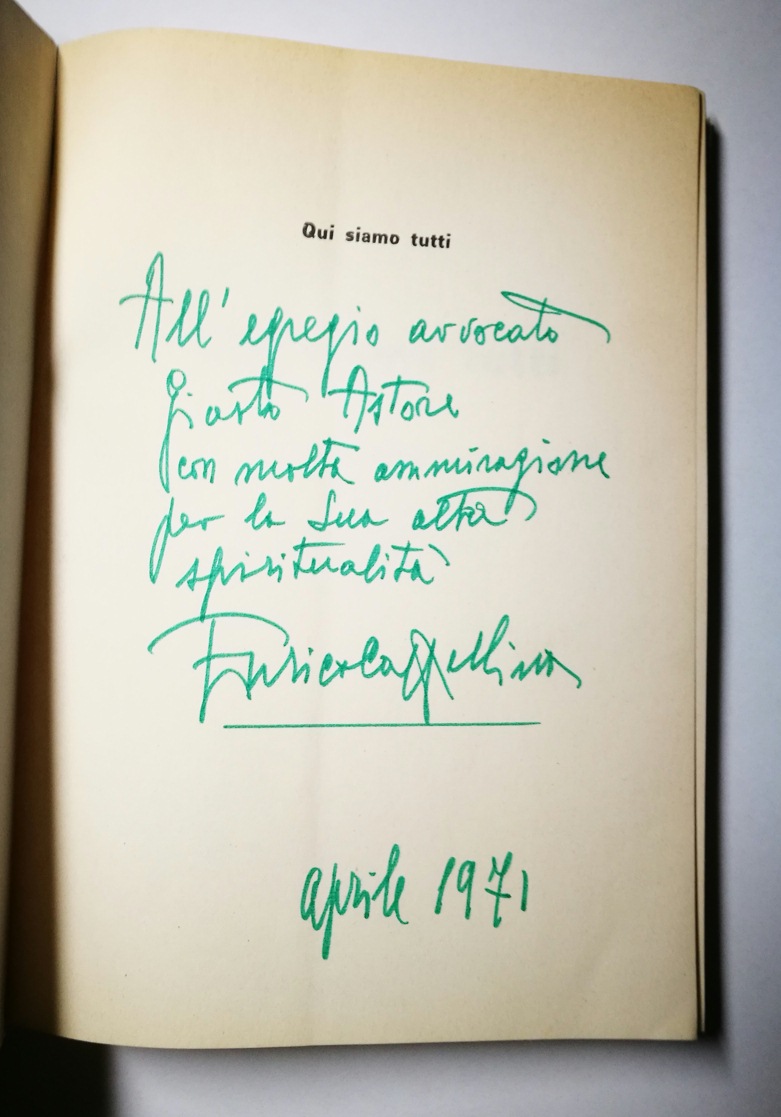 Qui siamo tutti
All' egregio avvocato
Giusto Astore
con molta ammirazione
per la Sua alta
spiritualità
Enrico Cappellina
aprile 1971